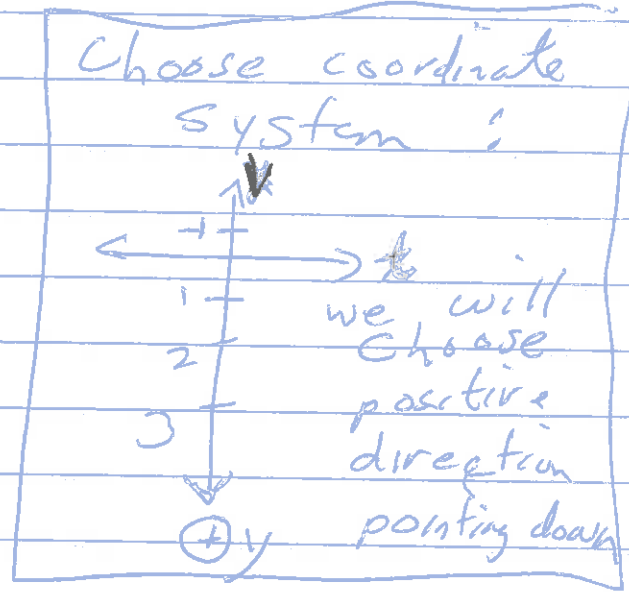 Choose coordinate
system :
V
-1
t
1
we will
2
choose
positive
3
direction
pointing down
+ y